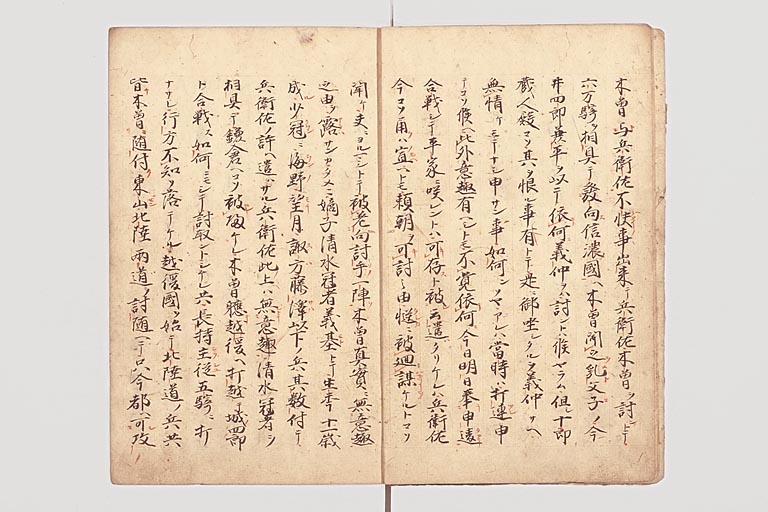 木曽与兵衛佐不快事出来テ兵衛佐木曽ヲ討ントテ
六万騎ヲ相具テ発向信濃国ヘ木曽聞之乳父子ノ今
井四郎兼平ヲ以テ依何義仲ヲ討ントハ候ヤラム但シ十郎
蔵人殿コソ其ヲ恨ル事有トテ是ニ御坐シツルヲ義仲サヘ
無情ケモテナシ申サン事如何ンソヤアレハ当時ハ打連申
テコソ候ヘ此外意趣有ヘシトモ不覚依何今日明日奉申違
合戦シテ平家咲レントハ可存ト被云遣タリケレハ兵衛佐
今コソ角ハ宣ヘトモ頼朝ヲ可討之由慥ニ被廻謀ケルトコソ
聞ケ夫ニヨルマシトテ被差向討手一陣木曽真実ニ無意趣
之由ヲ露サンカタメニ嫡子清水冠者義基トテ生季十一歳
成少冠ニ海野望月諏方藤澤以下ノ兵其数付テ
兵衛佐ノ許ヘ遣ハサル兵衛佐此上ハ無意趣清水冠者ヲ
相具テ鎌倉ヘコソ被帰ケレ木曽聴越後ヘ打越テ城四郎
ト合戦ス如何ニモシテ討取ントシケレ共長持主従五騎ニ打
ナサレ行方不知ソ落テケル越後国ヲ始テ北陸道ノ兵共
皆木曽ニ随付東山北陸両道ヲ討随ヘテ只今都ヘ可攻